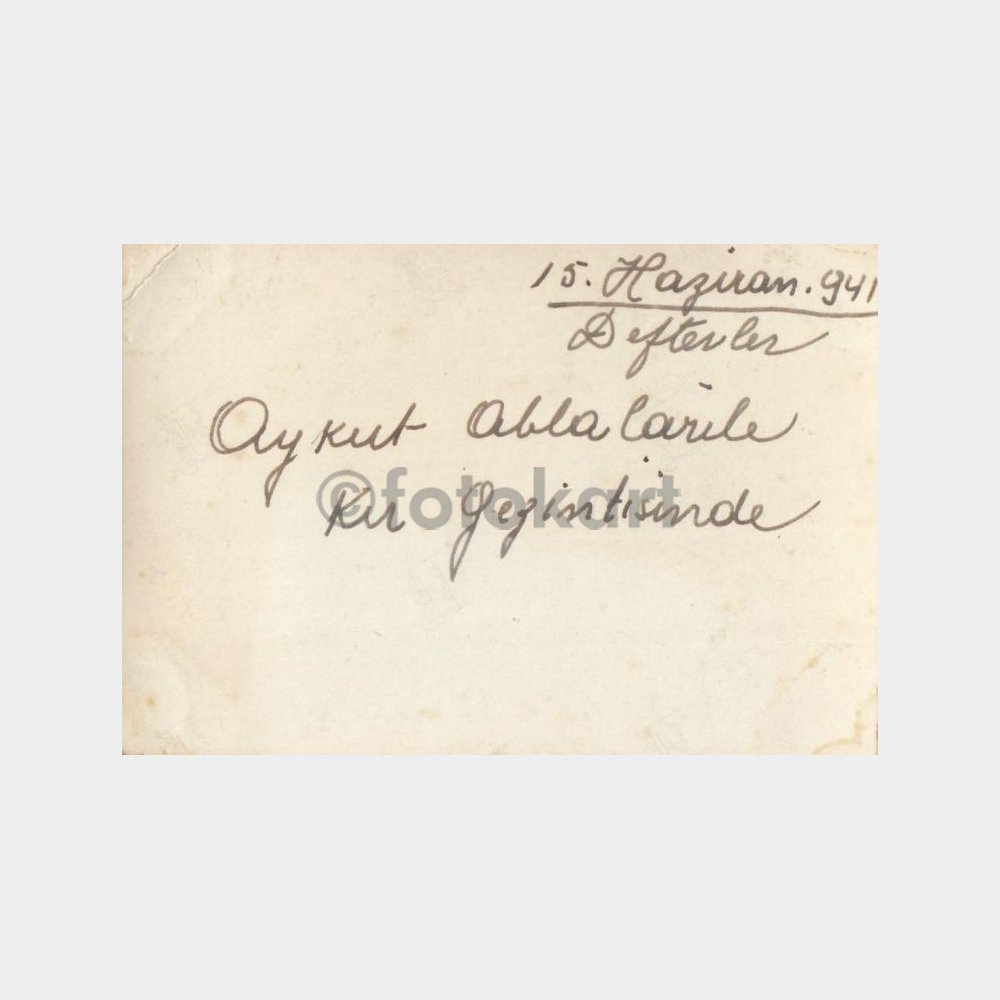 15. Haziran. 941
Defterler
Aykut Ablalarile
Kır Gezintisinde
©fotokart